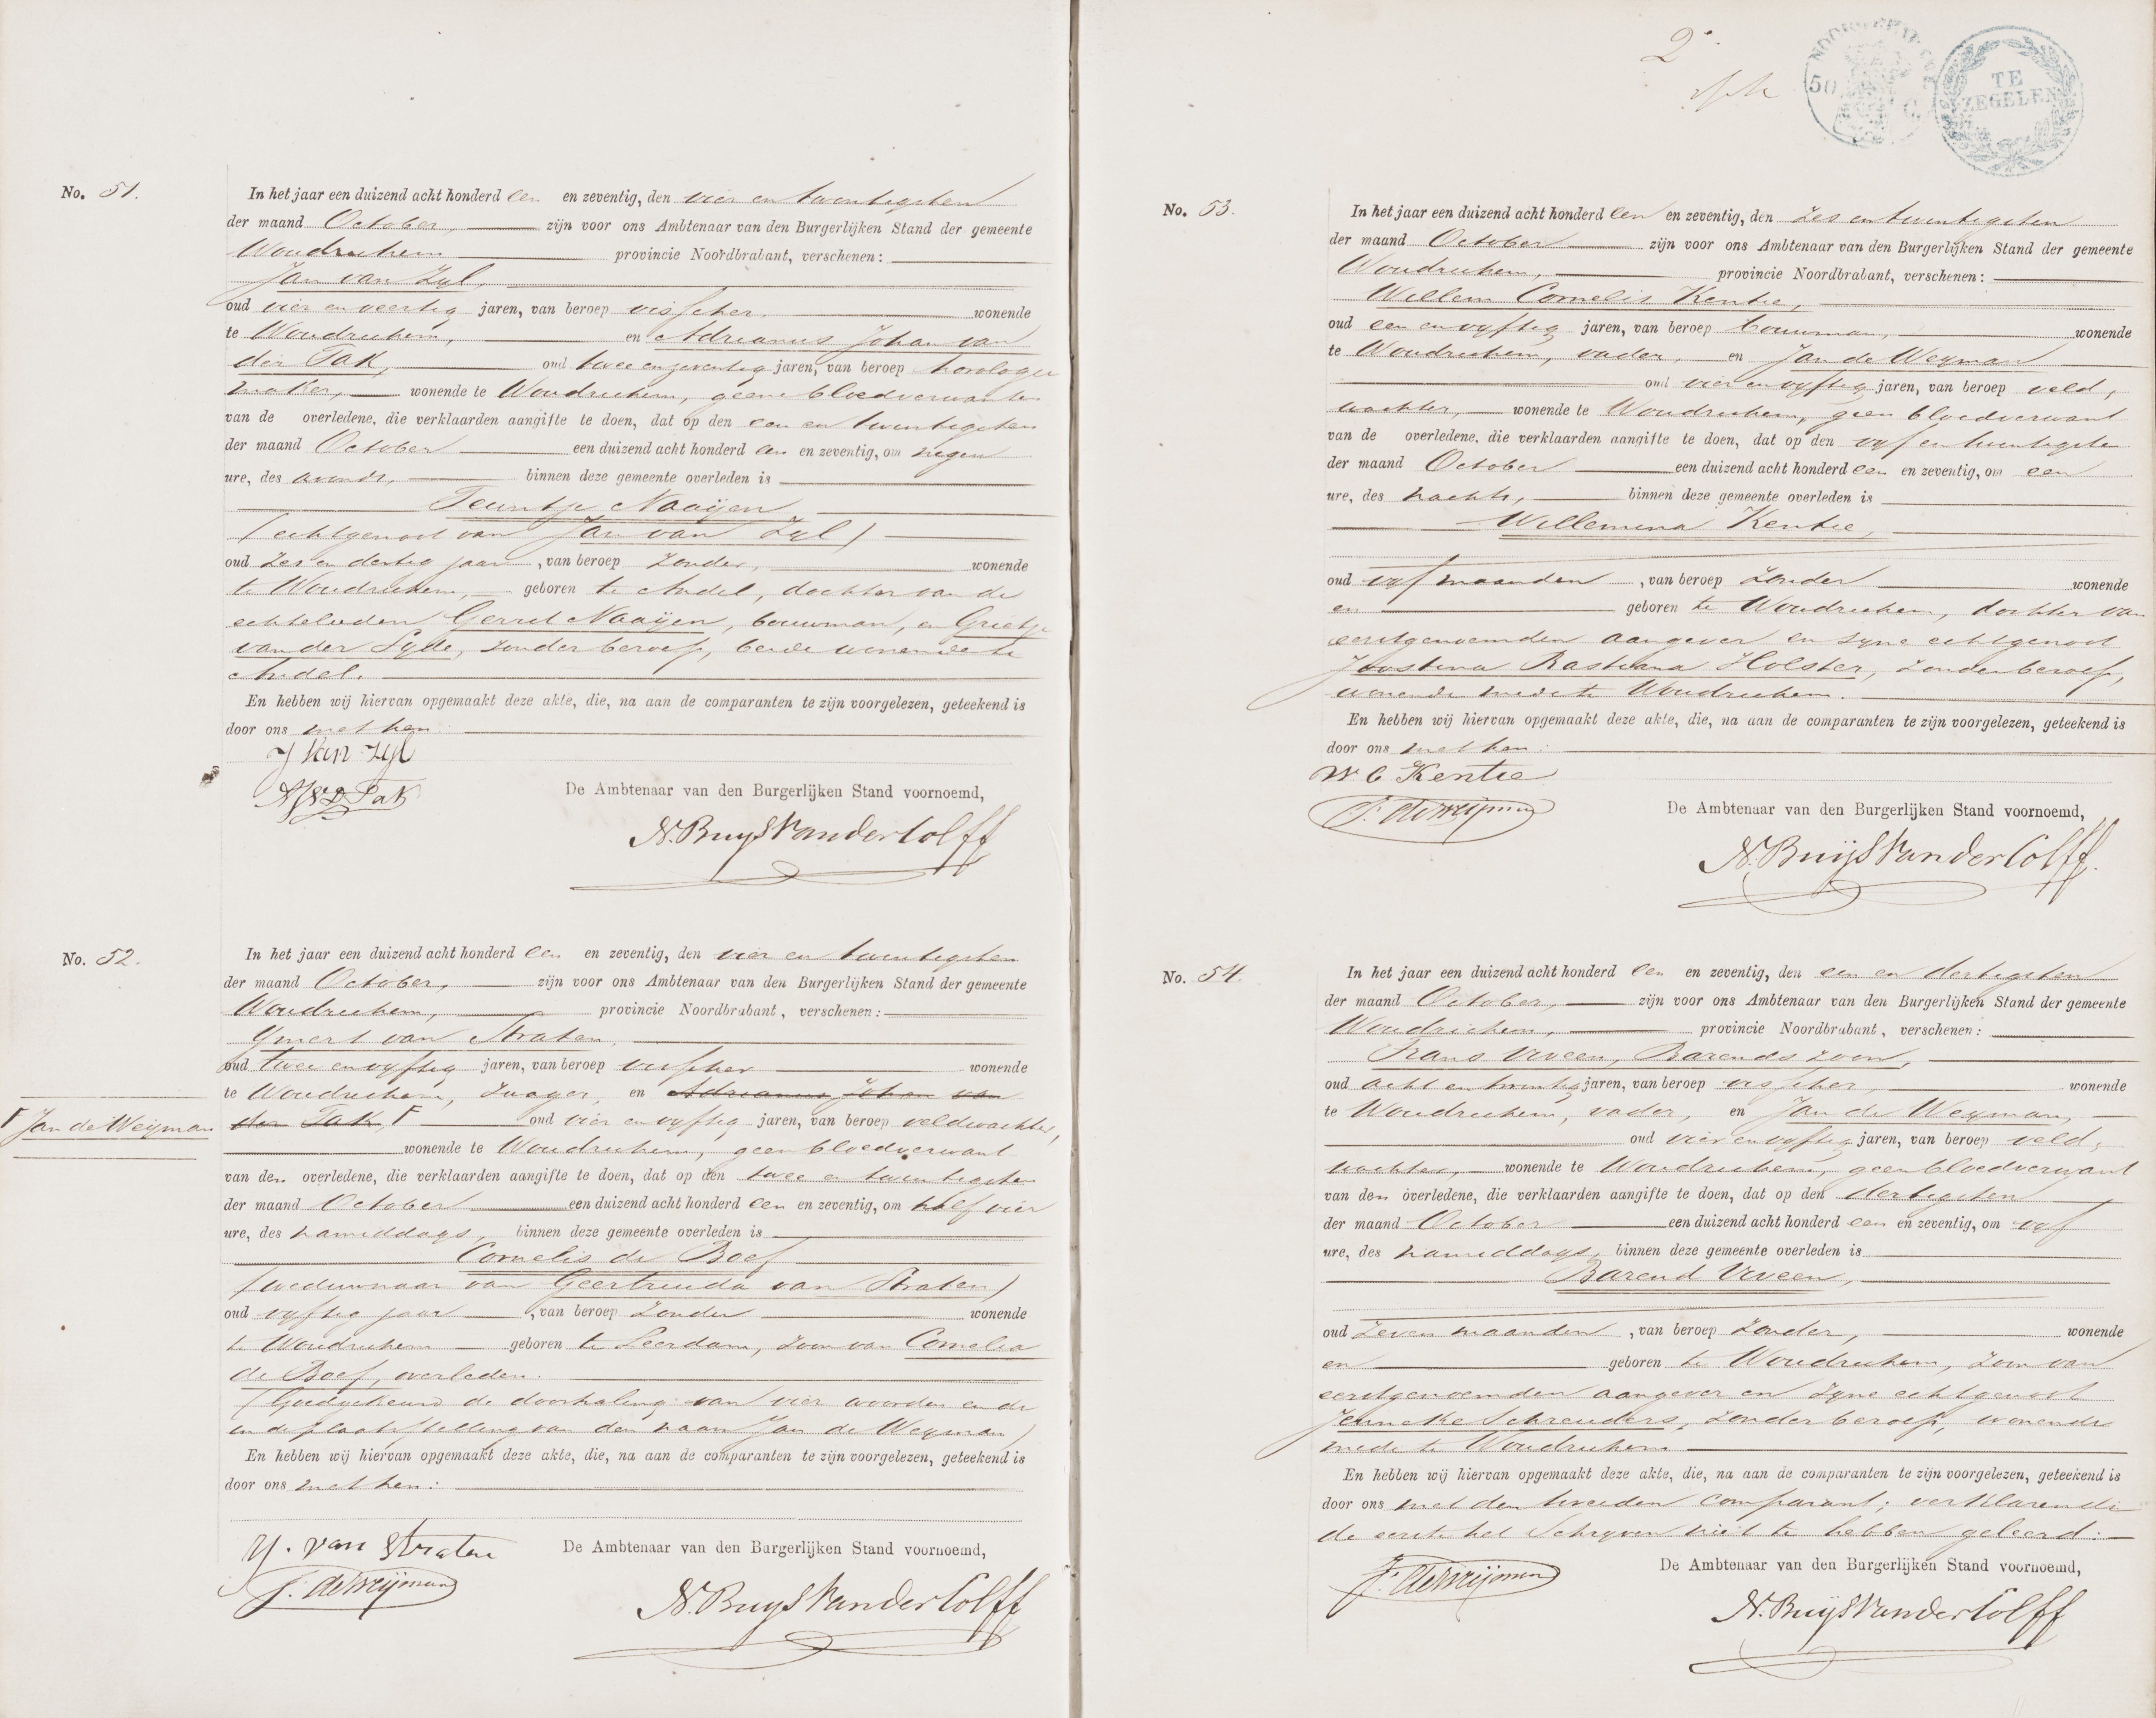 No. 51.
In het jaar een duizend acht honderd een en zeventig, den vier en twentigsten
der maand October, zijn voor ons Ambtenaar van den Burgerlijken Stand der gemeente
Woudrichem provincie Noordbrabant, verschenen:
Jan van Zyl,
oud vier en veertig jaren, van beroep visscher, wonende
te Woudrichem, en Adrianus Johan van
der Tak, oud twee en zeventig jaren, van beroep horologie
maker, wonende te Woudrichem, geene bloedverwanten
van de overledene, die verklaarden aangifte te doen, dat op den een en twentigsten
der maand October een duizend acht honderd een en zeventig, om negen
ure, des avonds, binnen deze gemeente overleden is
Teuntje Naaijen
(echtgenoot van Jan van Zyl)
oud zes en dertig jaar, van beroep zonder, wonende
te Woudrichem, geboren te Andel, dochter van de
echtelieden Gerrit Naaijen, bouwman, en Grietje
van der Syde, zonder beroep, beide wonende te
Andel.
En hebben wij hiervan opgemaakt deze akte, die, na aan de comparanten te zijn voorgelezen, geteekend is
door ons met hen:
J Van Zyl
AJVD Tak
De Ambtenaar van den Burgerlijken Stand voornoemd,
N. Buys Van der Colff
No. 52.
In het jaar een duizend acht honderd een en zeventig, den vier en twentigsten
der maand October, zijn voor ons Ambtenaar van den Burgerlijken Stand der gemeente
Woudrichem, provincie Noordbrabant, verschenen:
Ymert van Straten,
oud twee en vyftig jaren, van beroep visscher wonende
te Woudrichem, zwager, en Adrianus Johan van
Jan de Weyman
der Tak, oud vier en vyftig jaren, van beroep veldwachter,
wonende te Woudrichem, geen bloedverwant
van den overledene, die verklaarden aangifte te doen, dat op den twee en twentigsten
der maand October een duizend acht honderd een en zeventig, om half vier
ure, des namiddags, binnen deze gemeente overleden is
Cornelis de Boef
(weduwnaar van Geertruida van Straten)
oud vyftig jaar, van beroep zonder wonende
te Woudrichem geboren te Leerdam, zoon van Cornelia
de Boef, overleden.
(Goedgekeurd de doorhaling van vier woorden en de
in de plaatsstelling van den naam Jan de Weyman)
En hebben wij hiervan opgemaakt deze akte, die, na aan de comparanten te zijn voorgelezen, geteekend is
door ons met hen:
Y. van Straten
J. de Weijman
De Ambtenaar van den Burgerlijken Stand voornoemd,
N. Buys Van der Colff
2
NOORDBRABANT
50 C
TE
ZEGELEN
No. 53.
In het jaar een duizend acht honderd een en zeventig, den zes en twentigsten
der maand October zijn voor ons Ambtenaar van den Burgerlijken Stand der gemeente
Woudrichem, provincie Noordbrabant, verschenen:
Willem Cornelis Kentie,
oud een en vyftig jaren, van beroep bouwman, wonende
te Woudrichem, vader, en Jan de Weyman
oud vier en vyftig jaren, van beroep veld,
wachter, wonende te Woudrichem, geen bloedverwant
van de overledene, die verklaarden aangifte te doen, dat op den vyf en twentigste
der maand October een duizend acht honderd een en zeventig, om een
ure, des nachts, binnen deze gemeente overleden is
Willemina Kentie,
oud vyf maanden, van beroep zonder wonende
en geboren te Woudrichem, dochter van
eerstgenoemden aangever en zyne echtgenoot
Joostina Bastiana Holster, zonder beroep,
wonende mede te Woudrichem.
En hebben wij hiervan opgemaakt deze akte, die, na aan de comparanten te zijn voorgelezen, geteekend is
door ons met hen:
W C Kentie
J. de Weijman
De Ambtenaar van den Burgerlijken Stand voornoemd,
N. Buijs Van der Colff.
No. 54.
In het jaar een duizend acht honderd een en zeventig, den een en dertigsten
der maand October, zijn voor ons Ambtenaar van den Burgerlijken Stand der gemeente
Woudrichem, provincie Noordbrabant, verschenen:
Frans Viveen, Barends zoon,
oud acht en twintig jaren, van beroep visscher, wonende
te Woudrichem, vader, en Jan de Weyman,
oud vier en vyftig jaren, van beroep veld,
wachter, wonende te Woudrichem, geen bloedverwant
van den overledene, die verklaarden aangifte te doen, dat op den dertigsten
der maand October een duizend acht honderd een en zeventig, om vyf
ure, des namiddags, binnen deze gemeente overleden is
Barend Viveen,
oud zeven maanden, van beroep zonder, wonende
en geboren te Woudrichem, zoon van
eerstgenoemden aangever en zyne echtgenoot
Jenneke Schreuders, zonder beroep, wonende
mede te Woudrichem
En hebben wij hiervan opgemaakt deze akte, die, na aan de comparanten te zijn voorgelezen, geteekend is
door ons met den tweeden comparant; verklarende
de eerste het schryven niet te hebben geleerd.
J. de Weijman
De Ambtenaar van den Burgerlijken Stand voornoemd,
N. Buijs Van der Colff